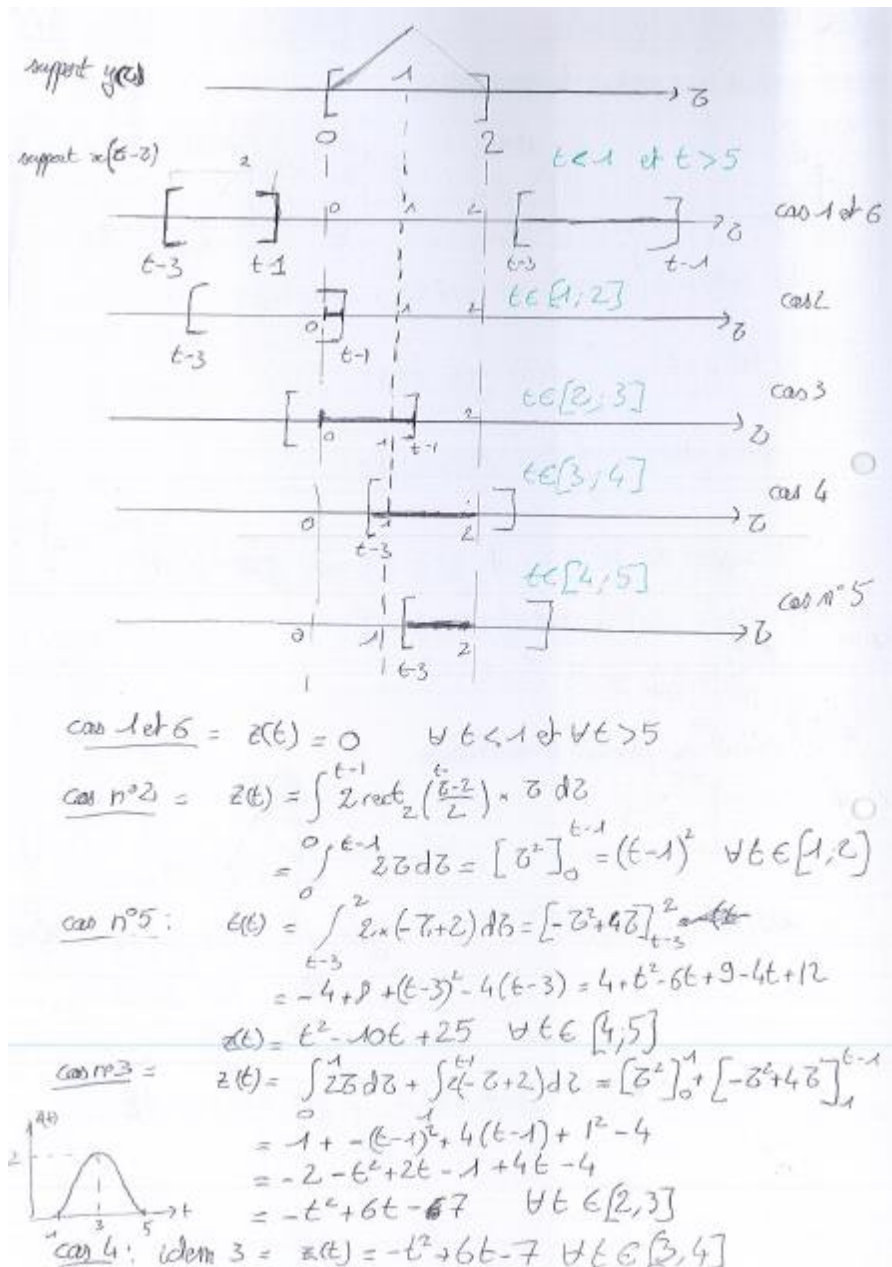 support y(τ)
[ 1 ] τ
0 2
support x(t-τ) 2 t<1 et t>5
[ ] 0 1 2 [ ] τ cas 1 et 6
t-3 t-1 t-3 t-1
[ 0 ] 1 2 t∈[1;2] τ cas 2
t-3 t-1
[ 0 1 ] 2 t∈[2;3] τ cas 3
t-1
0 [ 1 2 ] t∈[3;4] τ cas 4
t-3
0 1 [ 2 ] t∈[4;5] τ cas n°5
t-3
cas 1 et 6 = z(t) = 0 ∀ t<1 et ∀t>5
cas n°2 = z(t) = ∫₀^{t-1} 2 rect₂((t-τ-2)/2) × τ dτ
= ∫₀^{t-1} 2τdτ = [τ²]₀^{t-1} = (t-1)² ∀t∈[1,2]
cas n°5 : z(t) = ∫_{t-3}^{2} 2×(-τ+2)dτ = [-τ²+4τ]_{t-3}^{2}
= -4+8+(t-3)²-4(t-3) = 4+t²-6t+9-4t+12
z(t) = t²-10t+25 ∀t∈[4;5]
cas n°3 = z(t) = ∫₀^1 2τdτ + ∫₁^{t-1} 2(-τ+2)dτ = [τ²]₀^1 + [-τ²+4τ]₁^{t-1}
= 1 + -(t-1)²+4(t-1)+1²-4
= -2-t²+2t-1+4t-4
= -t²+6t-7 ∀t∈[2,3]
z(t)
2
1 3 5 t
cas 4 : idem 3 = z(t) = -t²+6t-7 ∀t∈[3,4]